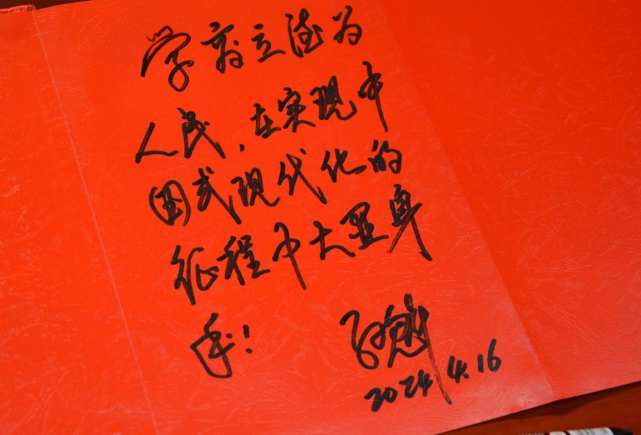 学 立德为
人民,在实现中
国式现代化的
征程中大显身
手!
2024.4.16